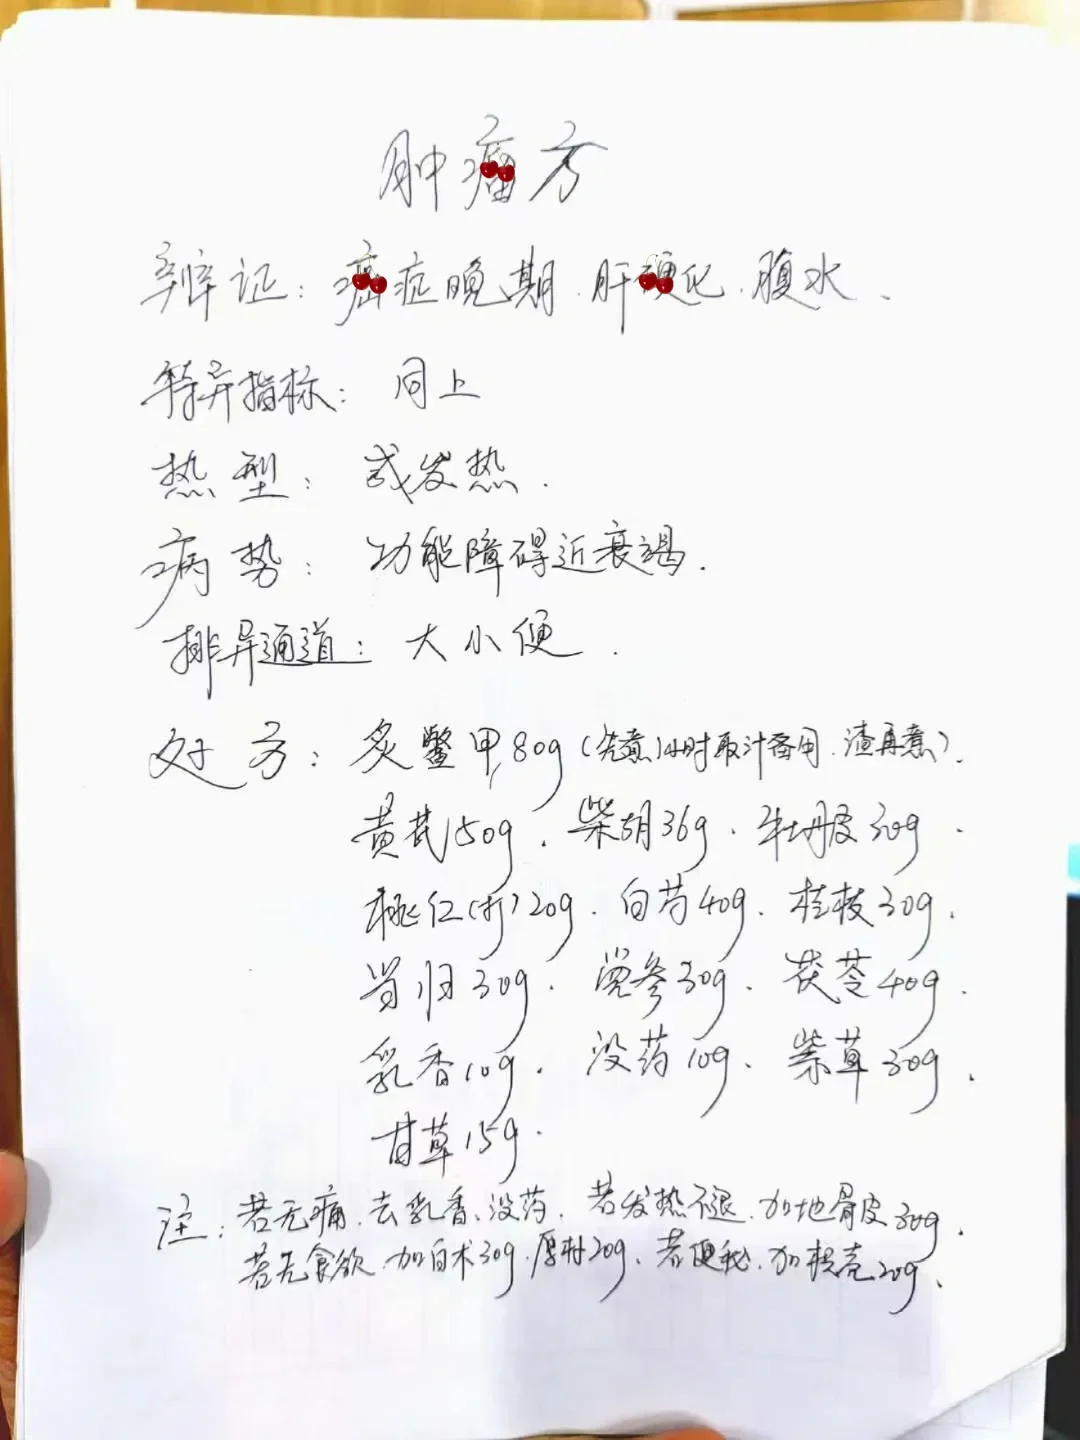 肿瘤方
辨证：癌症晚期.肝硬化.腹水.
特异指标：同上
热型：或发热.
病势：功能障碍近衰竭.
排异通道：大小便.
处方：炙鳖甲80g(先煮1小时取汁备用.渣再煮).
黄芪150g.柴胡36g.牡丹皮30g.
桃仁(打)20g.白芍40g.桂枝30g.
当归30g.党参30g.茯苓40g.
乳香10g.没药10g.紫草30g.
甘草15g.
注：若无痛.去乳香、没药.若发热不退.加地骨皮30g.
若无食欲.加白术30g.厚朴20g.若便秘.加枳壳20g.